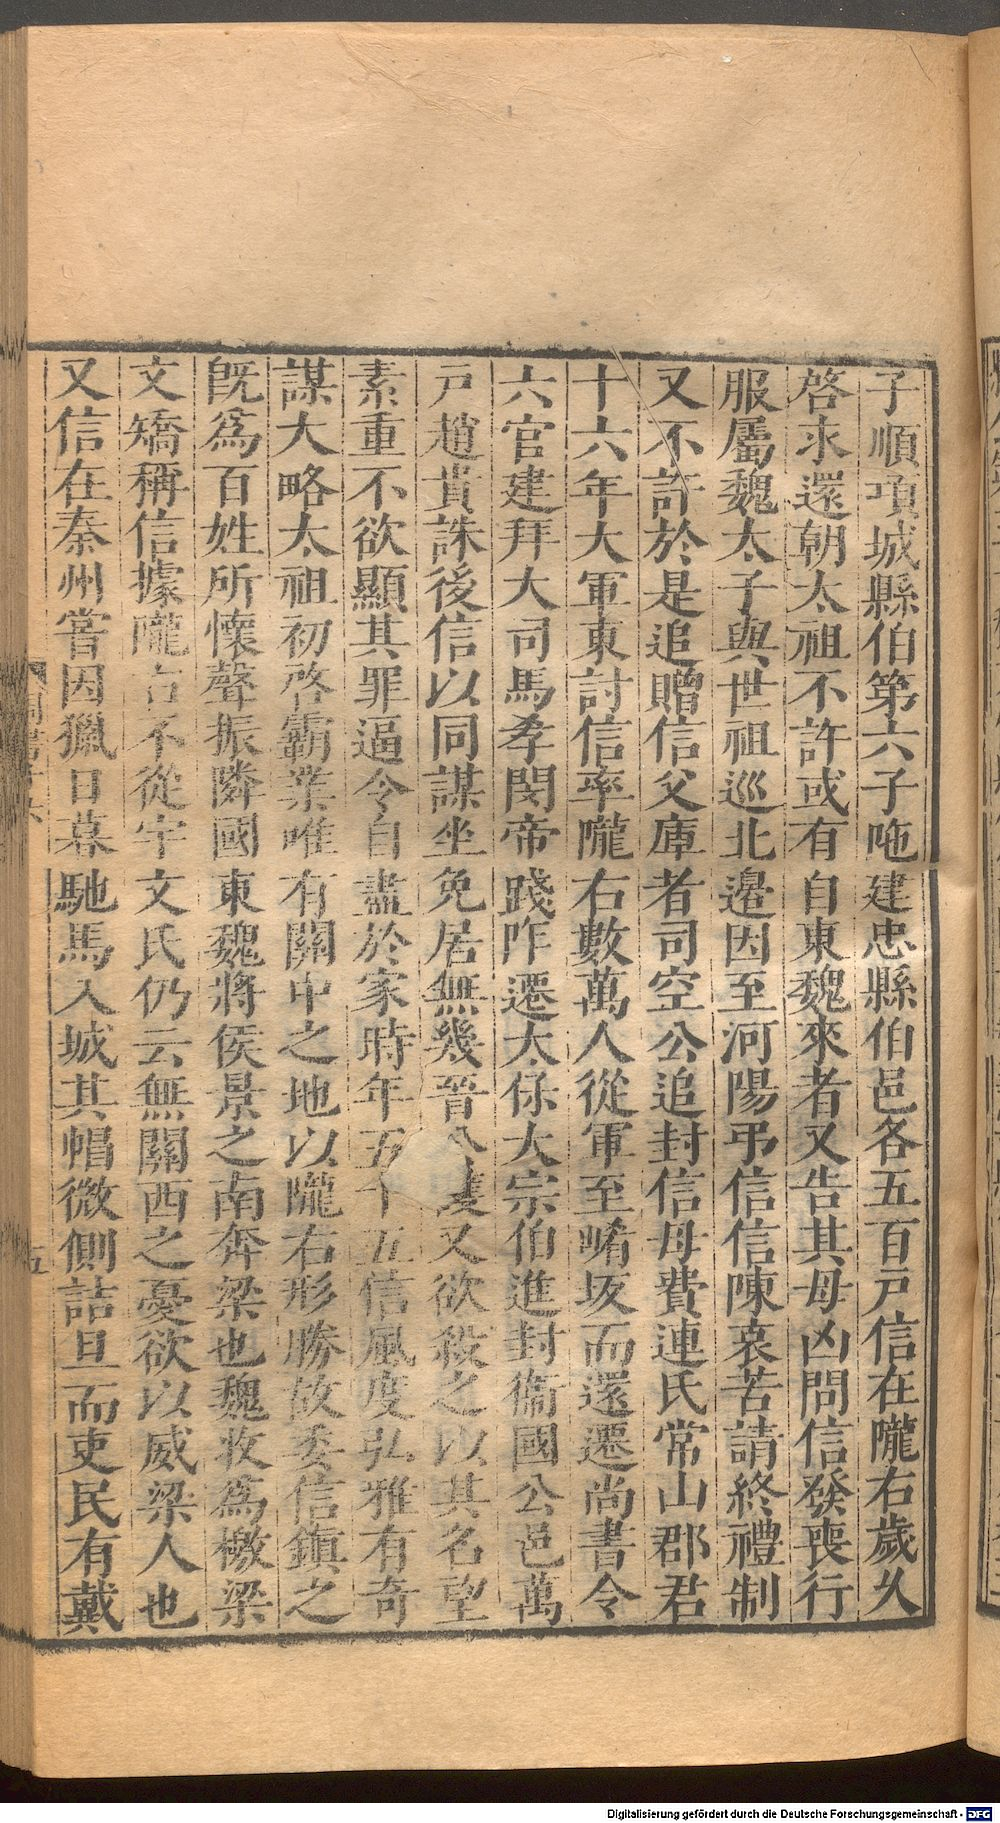 子順項城縣伯第六子陁建忠縣伯邑各五百戸信在隴右歲久
啓求還朝太祖不許或有自東魏來者又告其母凶問信發喪行
服屬魏太子與世祖巡北邊因至河陽弔信信陳哀苦請終禮制
又不許於是追贈信父庫者司空公追封信母費連氏常山郡君
十六年大軍東討信率隴右數萬人從軍至崤坂而還遷尚書令
六官建拜大司馬孝閔帝踐阼遷太保大宗伯進封衞國公邑萬
戸趙貴誅後信以同謀坐免居無幾晉護又欲殺之以其名望
素重不欲顯其罪逼令自盡於家時年五十五信風度弘雅有奇
謀大略太祖初啓霸業唯有關中之地以隴右形勝故委信鎮之
旣爲百姓所懷聲振隣國東魏將侯景之南奔梁也魏收爲檄梁
文矯稱信據隴右不從宇文氏仍云無關西之憂欲以威梁人也
又信在秦州嘗因獵日暮馳馬入城其帽微側詰旦而吏民有戴
五
Digitalisierung gefördert durch die Deutsche Forschungsgemeinschaft - DFG